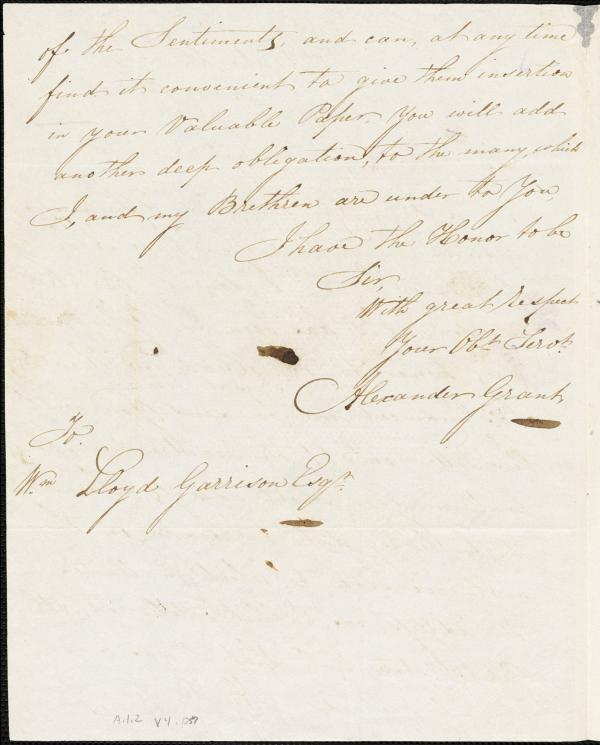 of the Sentiments, and can, at any time
find it convenient to give them insertion
in your Valuable Paper. You will add
another deep obligation, to the many, which
I, and my Brethren are under to You,
I have the Honor to be
Sir,
With great respect
Your Obt. Servt.
Alexander Grant
To.
Wm Lloyd Garrison Esqr.
A.1.2 V4. p57